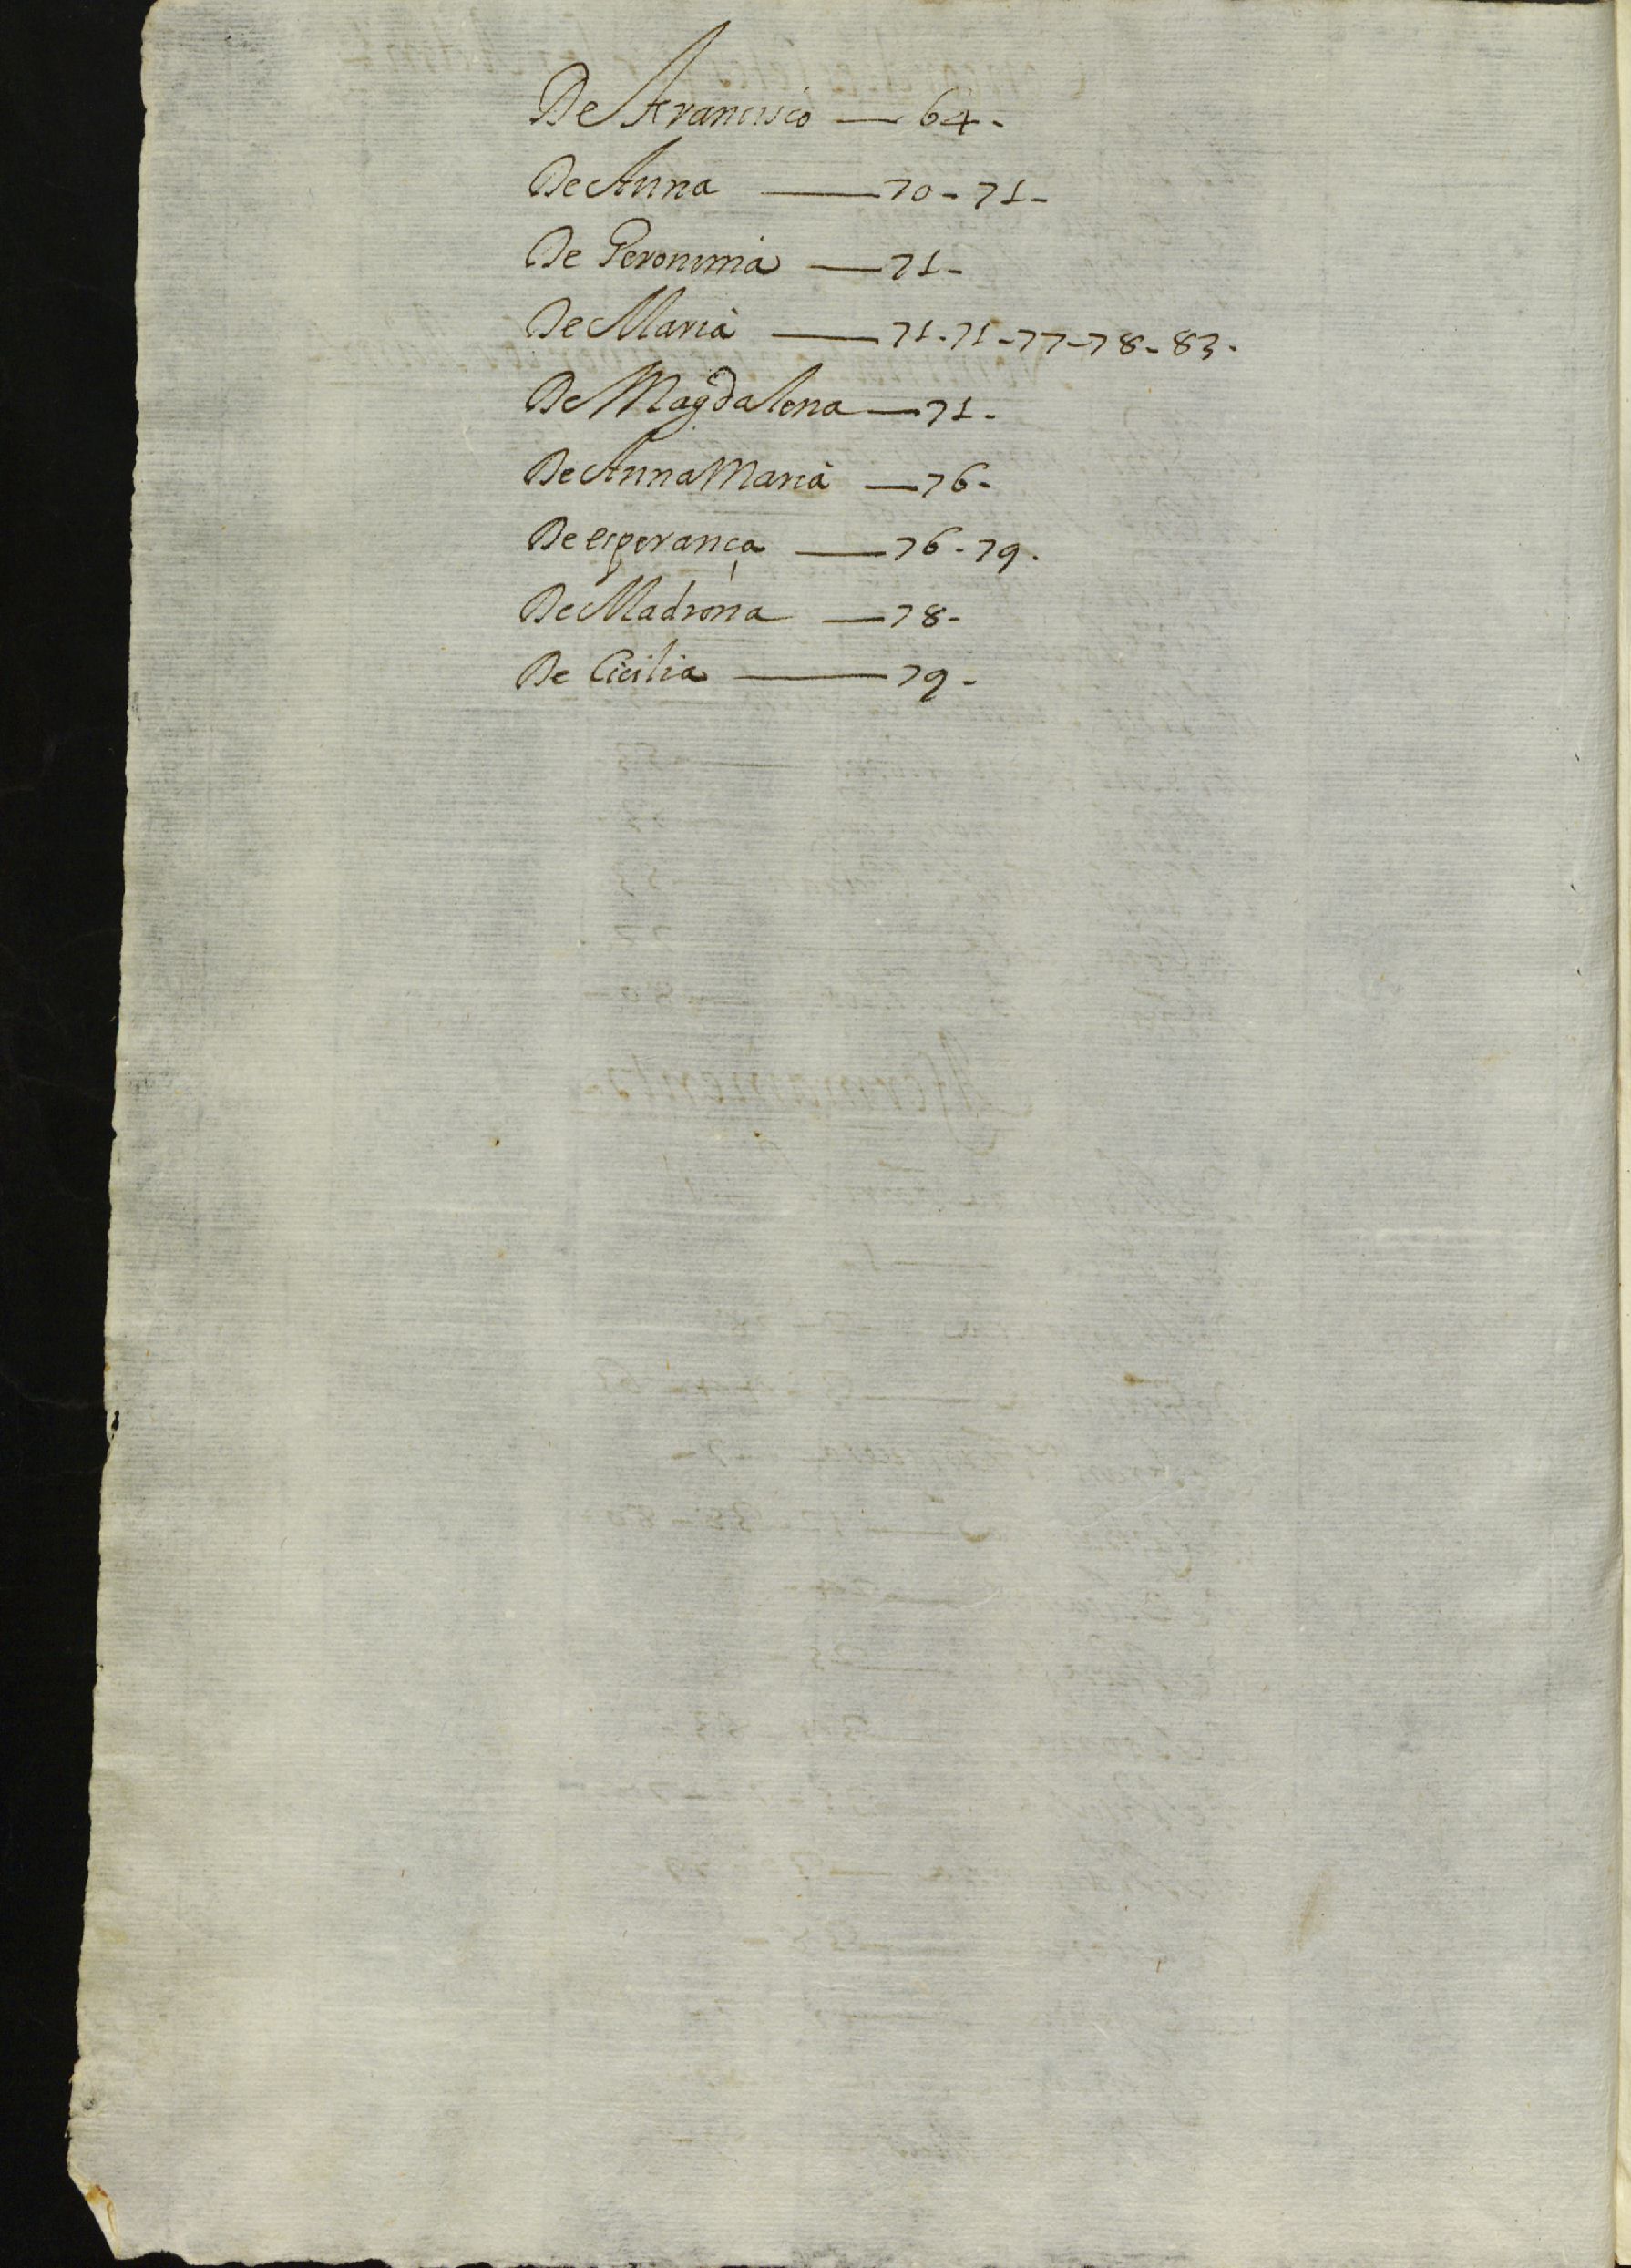 De Francisco — 64 -
De Anna — 70 - 71 -
De Geronima — 71 -
De Maria — 71 - 71 - 77 - 78 - 83 -
De Magdalena — 71 -
De Anna Maria — 76 -
De esperança — 76 - 79 .
De Madrona — 78 -
De Cicilia — 79 -